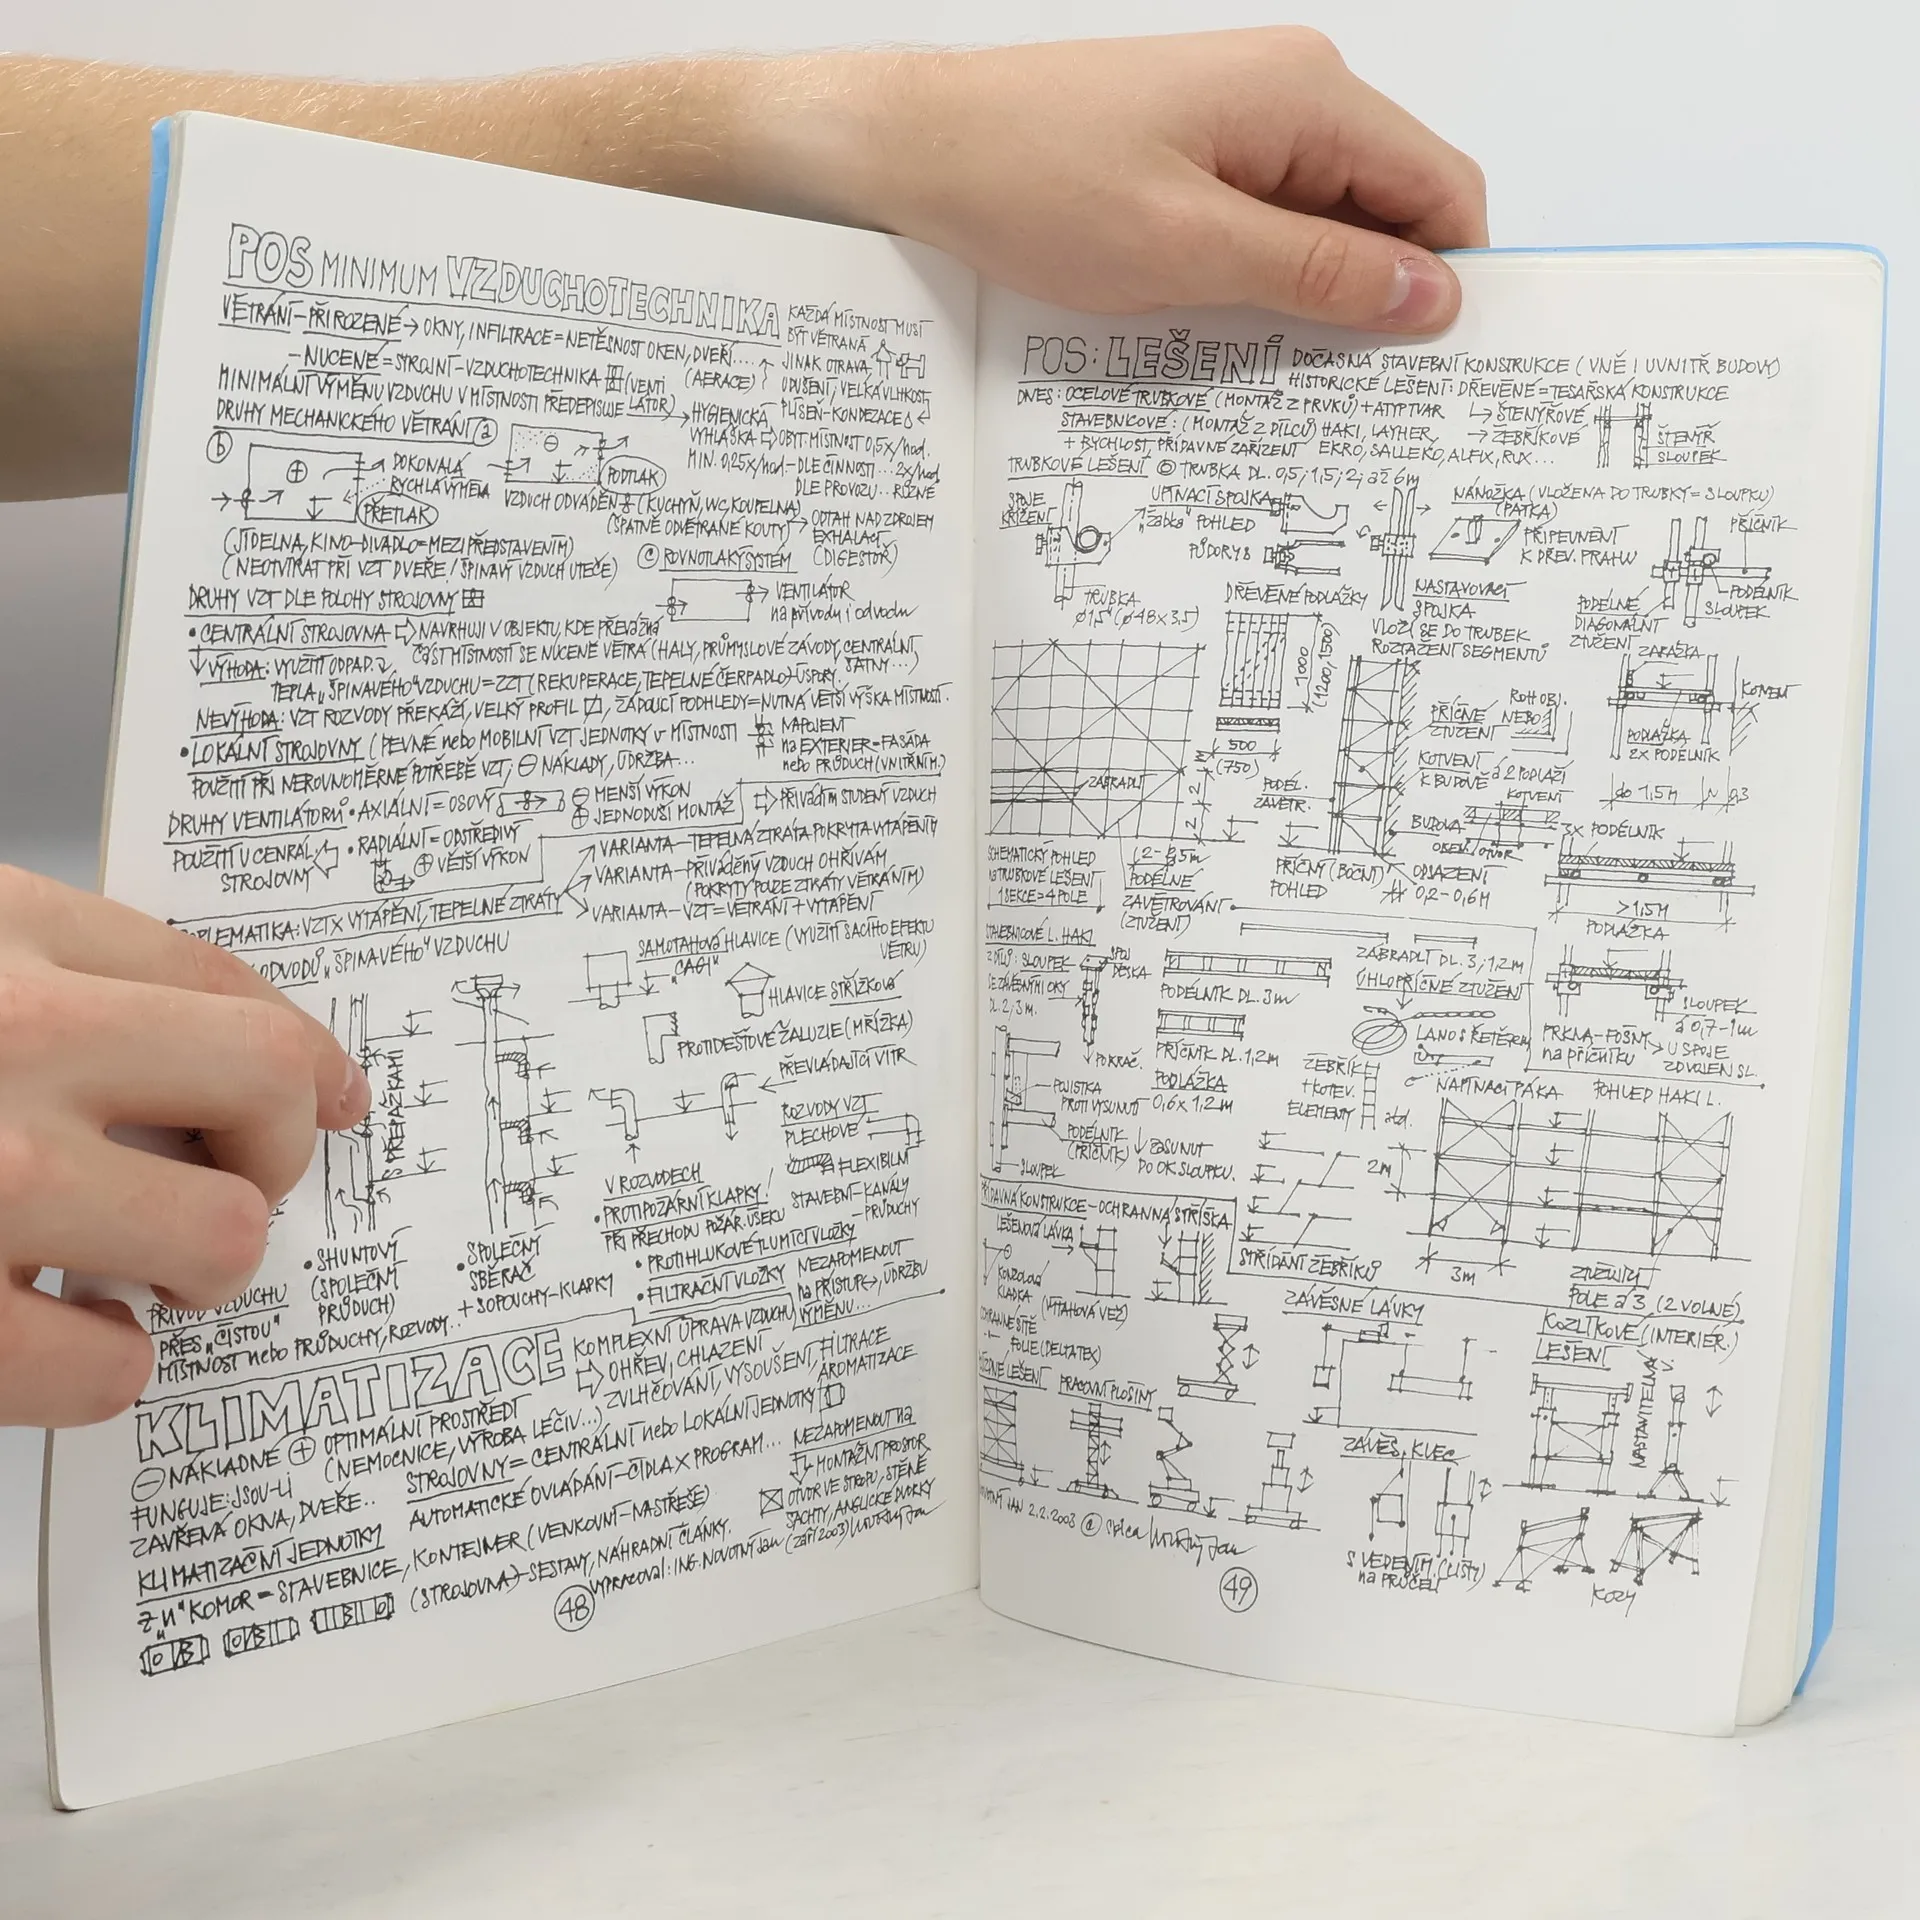 POS MINIMUM VZDUCHOTECHNIKA
KAŽDÁ MÍSTNOST MUSÍ
BÝT VĚTRANÁ
JINAK OTRAVA,
UDUŠENÍ, VELKÁ VLHKOST
PLÍSEŇ-KONDEZACE
VĚTRÁNÍ-PŘIROZENÉ → OKNY, INFILTRACE = NETĚSNOST OKEN, DVEŘÍ....
(AERACE)
- NUCENÉ = STROJNÍ-VZDUCHOTECHNIKA (VENTI
LÁTOR)
MINIMÁLNÍ VÝMĚNU VZDUCHU V MÍSTNOSTI PŘEDEPISUJE → HYGIENICKÁ
VYHLÁŠKA ⇨ OBYT. MÍSTNOST 0,5x/hod.
MIN. 0,25x/hod.-DLE ČINNOSTI...2x/hod
DLE PROVOZU...RŮZNÉ
DRUHY MECHANICKÉHO VĚTRÁNÍ ⓐ
ⓑ
⊕
DOKONALÁ
RYCHLÁ VÝMĚNA
PŘETLAK
⊖
PODTLAK
VZDUCH ODVÁDĚN (KUCHYŇ, WC, KOUPELNA)
(ŠPATNĚ ODVĚTRANÉ KOUTY) → ODTAH NAD ZDROJEM
EXHALACÍ
(DIGESTOŘ)
(JÍDELNA, KINO-DIVADLO=MEZI PŘEDSTAVENÍM)
(NEOTVÍRAT PŘI VZT DVEŘE! ŠPINAVÝ VZDUCH UTEČE)
ⓒ ROVNOTLAKÝ SYSTÉM
VENTILÁTOR
na přívodu i odvodu
DRUHY VZT DLE POLOHY STROJOVNY
• CENTRÁLNÍ STROJOVNA ⇨ NAVRHUJI V OBJEKTU, KDE PŘEVÁŽNÁ
ČÁST MÍSTNOSTÍ SE NUCENĚ VĚTRÁ (HALY, PRŮMYSLOVÉ ZÁVODY, CENTRÁLNÍ
ŠATNY...)
VÝHODA: VYUŽITÍ ODPAD.
TEPLA „ŠPINAVÉHO" VZDUCHU = ZZT (REKUPERACE, TEPELNÉ ČERPADLO)-ÚSPORY.
NEVÝHODA: VZT ROZVODY PŘEKÁŽÍ, VELKÝ PROFIL, ŽÁDOUCÍ PODHLEDY=NUTNÁ VĚTŠÍ VÝŠKA MÍSTNOSTÍ.
• LOKÁLNÍ STROJOVNY (PEVNÉ nebo MOBILNÍ VZT JEDNOTKY v MÍSTNOSTI
NAPOJENÍ
na EXTERIER=FASÁDA
nebo PRŮDUCH (VNITŘNÍ M.)
POUŽITÍ PŘI NEROVNOMĚRNÉ POTŘEBĚ VZT, ⊖ NÁKLADY, ÚDRŽBA...
DRUHY VENTILÁTORŮ • AXIÁLNÍ = OSOVÝ
⊖ MENŠÍ VÝKON
⊕ JEDNODUŠŠÍ MONTÁŽ
⇨ PŘIVÁDÍM STUDENÝ VZDUCH
POUŽITÍ V CENRÁL.
STROJOVNY
• RADIÁLNÍ = ODSTŘEDIVÝ
⊕ VĚTŠÍ VÝKON
VARIANTA-TEPELNÁ ZTRÁTA POKRYTA VYTÁPĚNÍM
VARIANTA-PŘIVÁDĚNÝ VZDUCH OHŘÍVÁM
(POKRYTY POUZE ZTRÁTY VĚTRÁNÍM)
VARIANTA-VZT=VĚTRÁNÍ+VYTÁPĚNÍ
PROBLEMATIKA: VZT X VYTÁPĚNÍ, TEPELNÉ ZTRÁTY
ODVODŮ „ŠPINAVÉHO" VZDUCHU
SAMOTAHOVÁ HLAVICE (VYUŽITÍ SACÍHO EFEKTU
„CAGI"
VĚTRU)
HLAVICE STŘÍŽKOVÁ
PROTIDEŠŤOVÉ ŽALUZIE (MŘÍŽKA)
PŘEVLÁDAJÍCÍ VÍTR
S PŘEPÁŽKAMI
ROZVODY VZT
PLECHOVÉ
FLEXIBILNÍ
STAVEBNÍ-KANÁLY
-PRŮDUCHY
V ROZVODECH
• PROTIPOŽÁRNÍ KLAPKY!
PŘI PŘECHODU POŽÁR. ÚSEKU
• PROTIHLUKOVÉ TLUMÍCÍ VLOŽKY
• FILTRAČNÍ VLOŽKY
NEZAPOMENOUT
na PŘÍSTUP, ÚDRŽBU
VÝMĚNU...
• SHUNTOVÝ
(SPOLEČNÝ
PRŮDUCH)
• SPOLEČNÝ
SBĚRAČ
+ SOPOUCHY-KLAPKY
PŘÍVOD VZDUCHU
PŘES „ČISTOU"
MÍSTNOST nebo PRŮDUCHY, ROZVODY...
KLIMATIZACE KOMPLEXNÍ ÚPRAVA VZDUCHU
⇨ OHŘEV, CHLAZENÍ
ZVLHČOVÁNÍ, VYSOUŠENÍ, FILTRACE
AROMATIZACE
⊖ NÁKLADNÉ ⊕ OPTIMÁLNÍ PROSTŘEDÍ
(NEMOCNICE, VÝROBA LÉČIV...)
FUNGUJE: JSOU-LI
ZAVŘENÁ OKNA, DVEŘE..
STROJOVNY = CENTRÁLNÍ nebo LOKÁLNÍ JEDNOTKY
AUTOMATICKÉ OVLÁDÁNÍ-ČIDLA X PROGRAM...
NEZAPOMENOUT na
MONTÁŽNÍ PROSTOR
OTVOR VE STROPU, STĚNĚ
ŠACHTY, ANGLICKÉ DVORKY
KLIMATIZAČNÍ JEDNOTKY
Z „N" KOMOR = STAVEBNICE, KONTEJNER (VENKOVNÍ-NA STŘEŠE)
(STROJOVNA)-SESTAVY, NÁHRADNÍ ČLÁNKY.
vypracoval: ING. NOVOTNÝ Jan (září 2003)
48
POS: LEŠENÍ DOČASNÁ STAVEBNÍ KONSTRUKCE (VNĚ I UVNITŘ BUDOVY)
HISTORICKÉ LEŠENÍ: DŘEVĚNÉ = TESAŘSKÁ KONSTRUKCE
ŠTENÝŘOVÉ
→ ŽEBŘÍKOVÉ
ŠTENÝŘ
SLOUPEK
DNES: OCELOVÉ TRUBKOVÉ (MONTÁŽ Z PRVKŮ) + ATYP TVAR
STAVEBNICOVÉ: (MONTÁŽ Z DÍLCŮ) HAKI, LAYHER,
+ RYCHLOST, PŘÍDAVNÉ ZAŘÍZENÍ EKRO, SALLEKO, ALFIX, RUX...
TRUBKOVÉ LEŠENÍ TRUBKA DL. 0,5; 1,5; 2; až 6m
SPOJE
KŘÍŽENÍ
UPÍNACÍ SPOJKA
„žabka" POHLED
PŮDORYS
TRUBKA
ø1,5" (ø48x3,5)
NÁNOŽKA (VLOŽENA DO TRUBKY=SLOUPKU)
(PATKA)
PŘIPEVNĚNÍ
K DŘEV. PRAHU
NASTAVOVACÍ
SPOJKA
VLOŽÍ SE DO TRUBEK
ROZTAŽENÍ SEGMENTŮ
PŘÍČNÍK
PODÉLNÍK
SLOUPEK
PODÉLNÉ
DIAGONÁLNÍ
ZTUŽENÍ
DŘEVĚNÉ PODLÁŽKY
1000
(1200, 1500)
500
(750)
ZARÁŽKA
KOTVENÍ
PODLÁŽKA
2x PODÉLNÍK
do 1,5m
0,3
ZÁBRADLÍ
2
2
PODÉL.
ZAVĚTR.
PŘÍČNÉ
ZTUŽENÍ
ROH OBJ.
NEBO
KOTVENÍ
K BUDOVĚ á 2 PODLAŽÍ
KOTVENÍ
BUDOVA
OKENÍ OTVOR
ODSAZENÍ
0,2-0,6M
PŘÍČNÝ (BOČNÍ)
POHLED
3x PODÉLNÍK
>1,5M
PODLÁŽKA
SCHEMATICKÝ POHLED
NA TRUBKOVÉ LEŠENÍ
1 SEKCE=4 POLE
PODÉLNÉ
ZAVĚTROVÁNÍ
(ZTUŽENÍ)
STAVEBNICOVÉ L. HAKI
Z DÍLŮ: SLOUPEK
SE ZÁVĚSNÝMI OKY
DL. 2; 3m.
POKRAČ.
PODÉLNÍK DL. 3m
PŘÍČNÍK DL. 1,2m
PODLÁŽKA
0,6 x 1,2m
ZÁBRADLÍ DL. 3; 1,2m
ÚHLOPŘÍČNÉ ZTUŽENÍ
LANO S ŘETĚZEM
NAPÍNACÍ PÁKA
ŽEBŘÍK
+KOTEV.
ELEMENTY atd.
SLOUPEK
á 0,7-1m
PRKNA-FOŠNY
na příčníku
U SPOJE
ZDVOJEN SL.
POJISTKA
PROTI VYSUNUTÍ
PODÉLNÍK
(PŘÍČNÍK)
ZASUNUT
DO OK SLOUPKU.
SLOUPEK
POHLED HAKI L.
2m
3m
STŘÍDÁNÍ ŽEBŘÍKŮ
POLE á 3 (2 VOLNÉ)
PŘÍDAVNÁ KONSTRUKCE-OCHRANNÁ STŘÍŠKA
LEŠENOVÁ LÁVKA
KONZOLOVÁ
KLADKA
(VÝTAHOVÁ VĚŽ)
OCHRANNÉ SÍTĚ
FOLIE (DELTATEX)
POJÍZDNÉ LEŠENÍ
PRACOVNÍ PLOŠINY
ZÁVĚSNÉ LÁVKY
ZÁVĚS. KLEC
S VEDENÍM (LIŠTY)
na PRŮČELÍ
KOZLÍKOVÉ (INTERIÉR.)
LEŠENÍ
NASTAVITELNÁ V.
KOZY
NOVOTNÝ JAN 2.2.2003
49